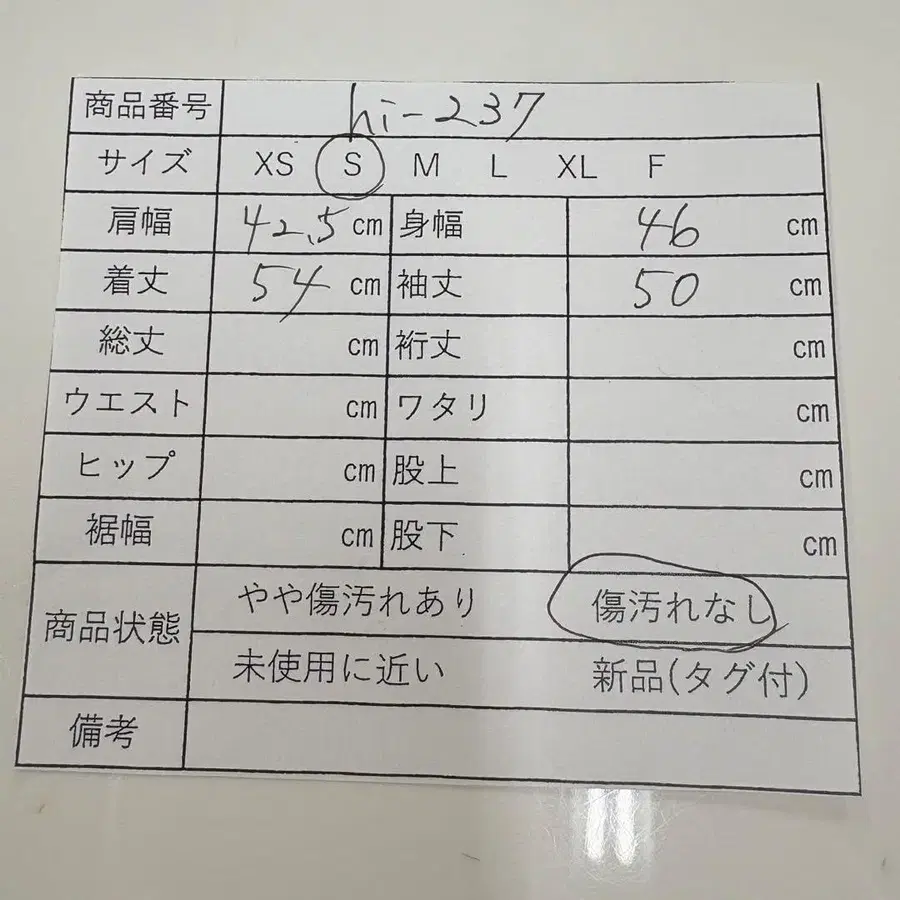 商品番号 hi-237
サイズ XS S M L XL F
肩幅 42.5 cm 身幅 46 cm
着丈 54 cm 袖丈 50 cm
総丈 cm 裄丈 cm
ウエスト cm ワタリ cm
ヒップ cm 股上 cm
裾幅 cm 股下 cm
商品状態 やや傷汚れあり 傷汚れなし
未使用に近い 新品(タグ付)
備考